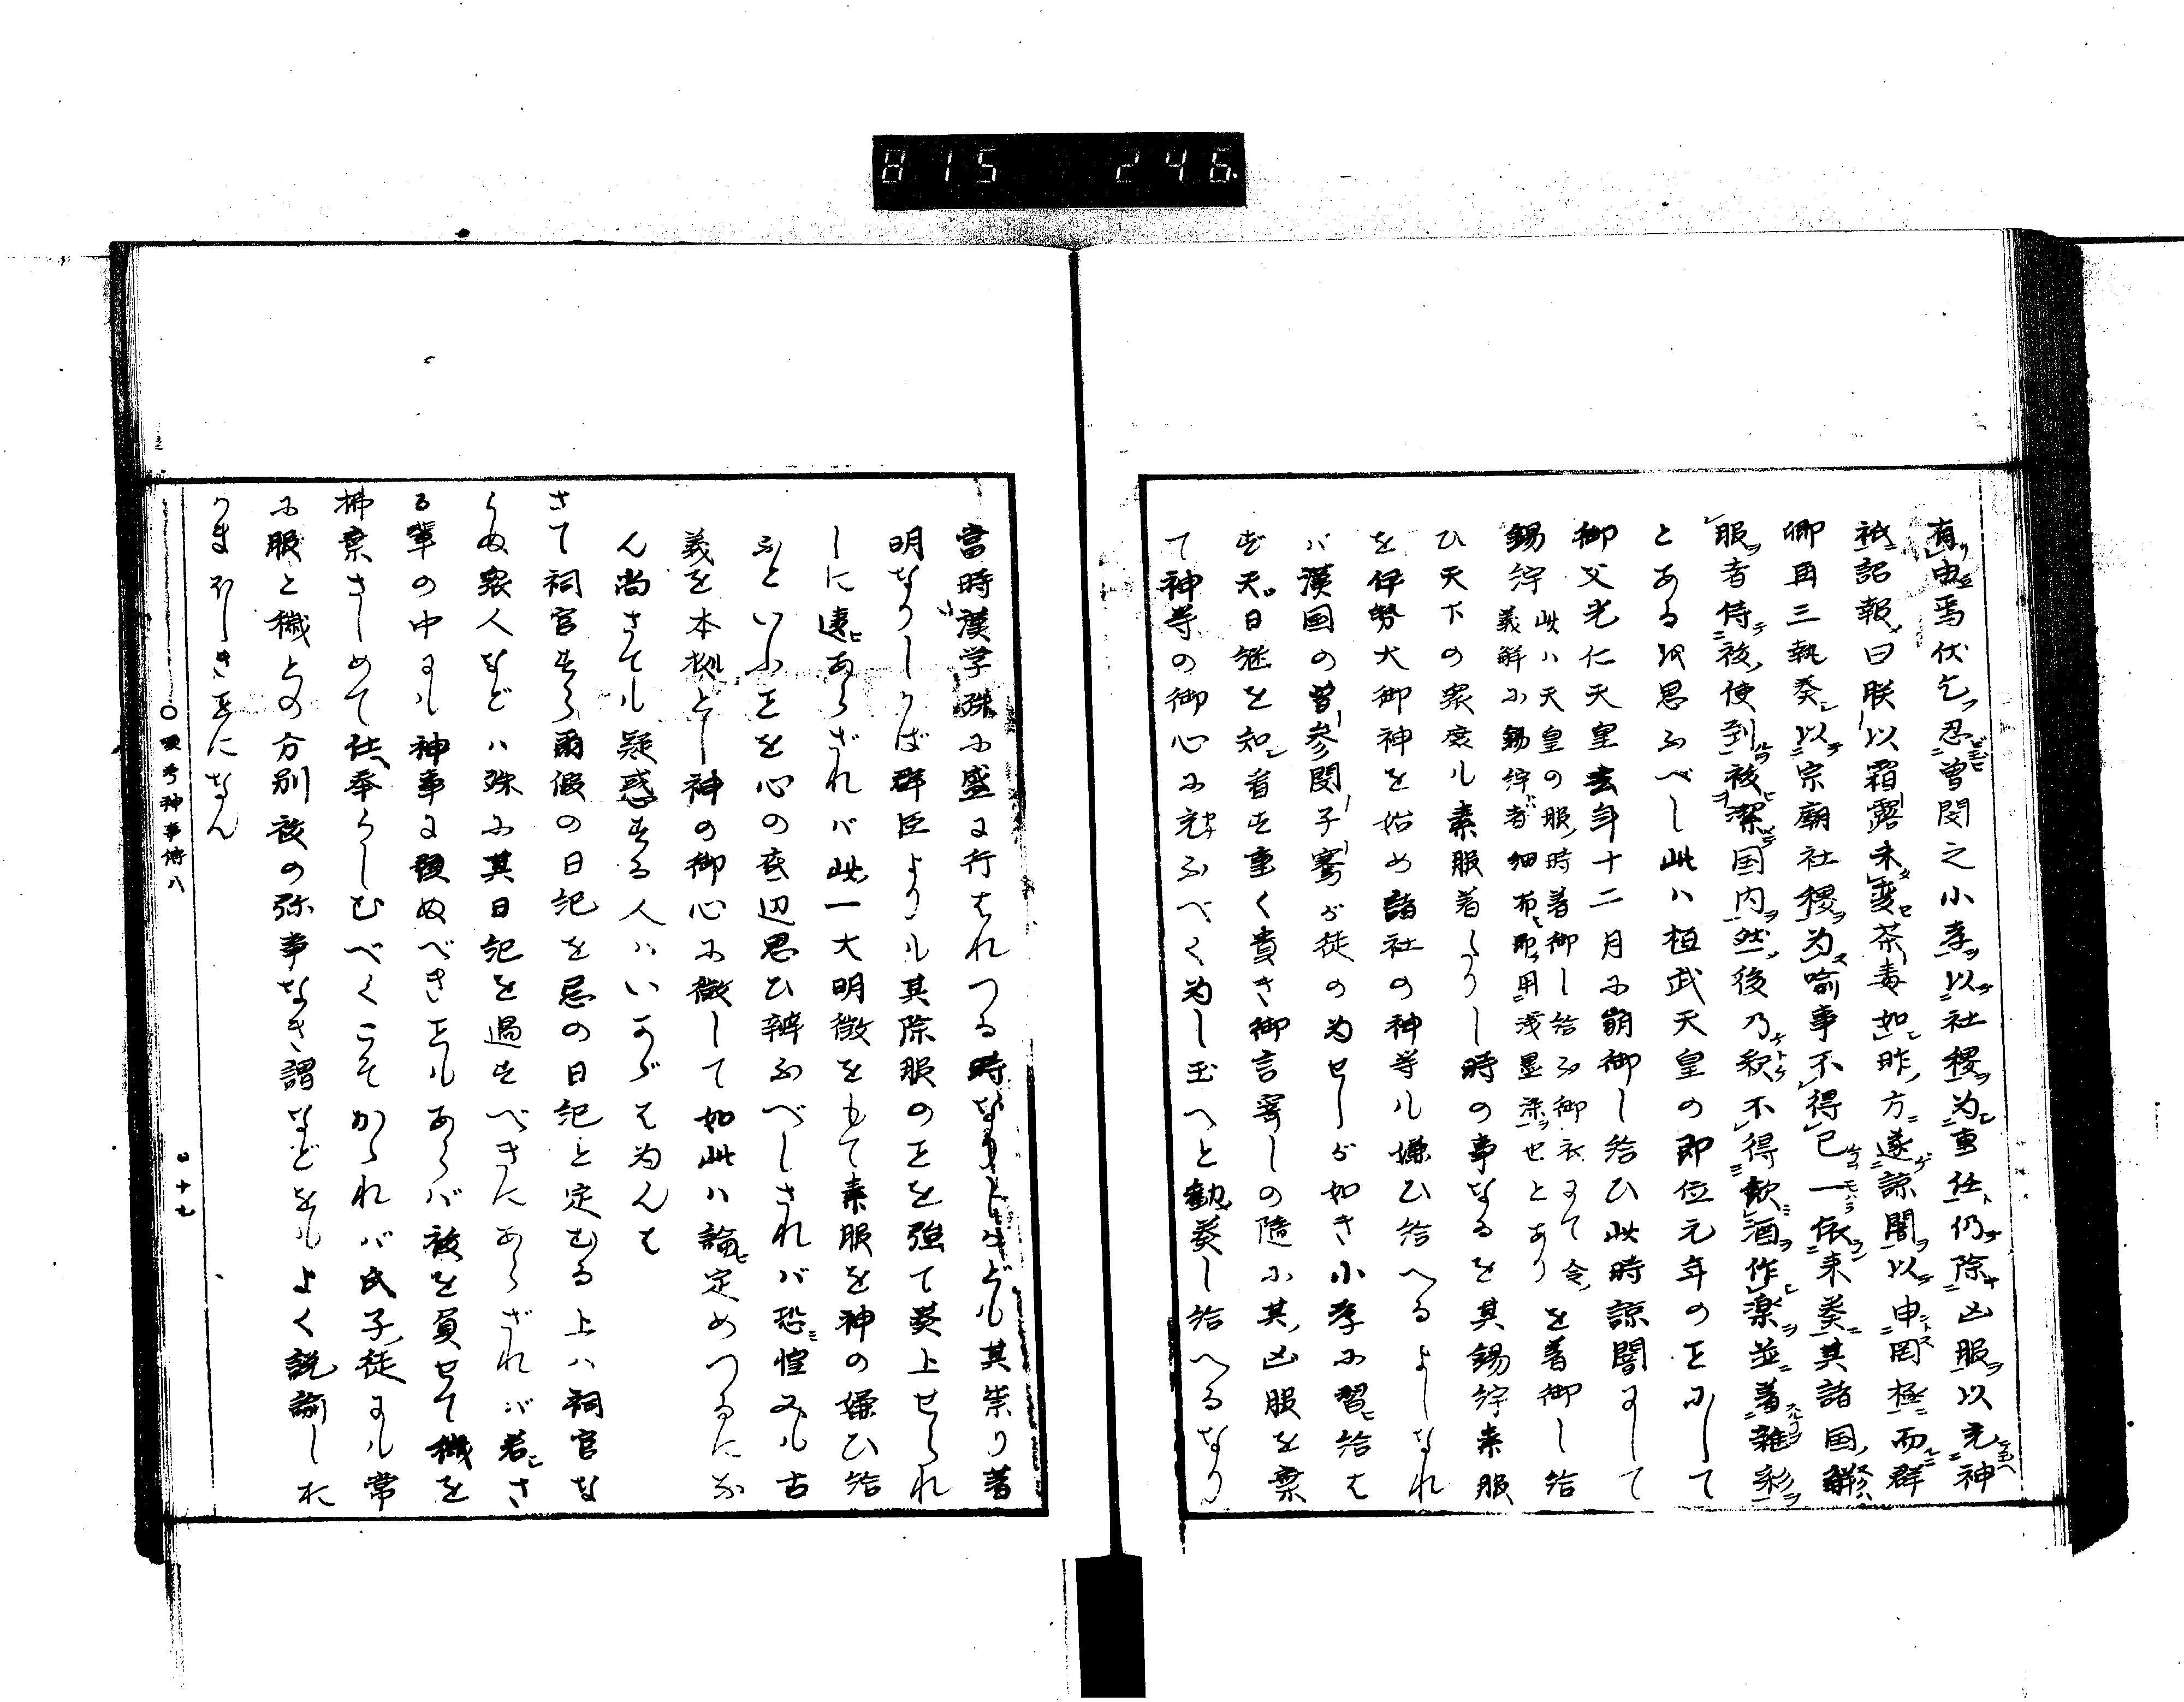 815 246
有由焉伏乞忍曽閔之小孝以社稷為重任仍除凶服以充神
祇詔報曰朕以霜露未変荼毒如昨方遂諒闇以申罔極而群
卿再三執奏以宗廟社稷為喩事不得已一依来奏其諸国釈
服者侍祓使到祓潔国内然後乃釈不得飲酒作楽並着雑彩
とある以思ふべし此ハ桓武天皇の即位元年のことにして
御父光仁天皇去年十二月に崩御し給ひ此時諒闇にして
錫紵此ハ天皇の服時着御し給ふ御衣にて令
義解に錫紵者細布即用浅墨染せとありを着御し給
ひ天下の衆庶も素服着たりし時の事なるを其錫紵素服
を伊勢大御神を始め諸社の神等も嫌ひ給へるよしなれ
バ漢国の曽参閔子騫が徒の為せしが如き小孝に習ひ給は
ず天日継を知し看す重く貴き御言寄しの随に其凶服を棄
て神等の御心に充ふべく為し玉へと勧奏し給へるなり
當時漢学殊に盛に行はれつる時なりしかども其祟り著
明なりしかば群臣よりも其除服のことを強て奏上せられ
しに違あらざれバ此一大明徴をもて素服を神の嫌ひ給
ふといふことを心の底辺思ひ辨ふべしされバ恐惶みも古
義を本拠とし神の御心に徴して如此ハ論定めつるにな
ん尚さても疑惑する人ハいかゞは為んも
さて祠官すら両假の日記を忌の日記と定むる上ハ祠官な
らぬ衆人などハ殊に其日記を過すべきにあらざれバ若さ
る輩の中にも神事に預ぬべきこともあらバ祓を負せて穢を
拂棄さしめて仕奉らしむべくこそかゝれバ氏子徒にも常
に服と穢との方別祓の弥事なき謂などをもよく説諭しお
かまほしきことになん
〇四 考神事傳八
四十七